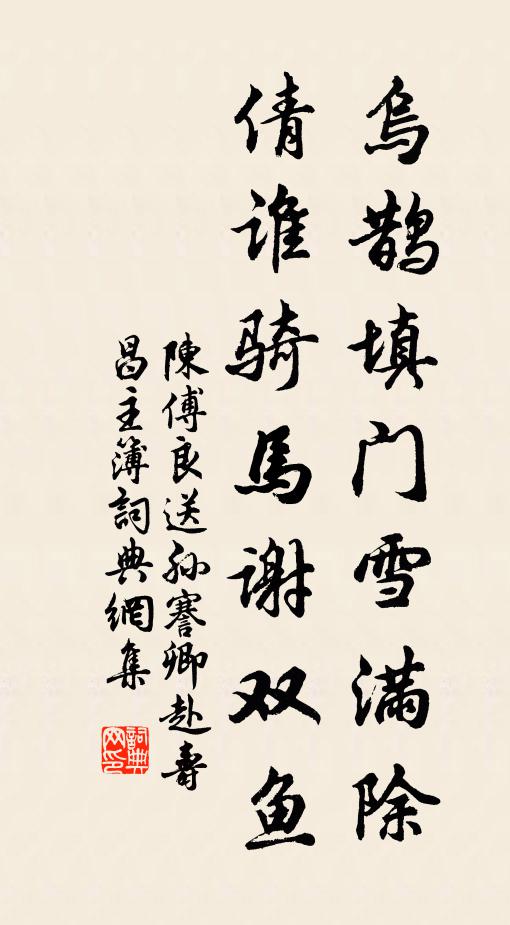 烏鹊填门雪满除
倩谁骑馬谢双鱼
陳傅良送孙謇卿赴壽
昌主簿詞典網集
詞典
网印